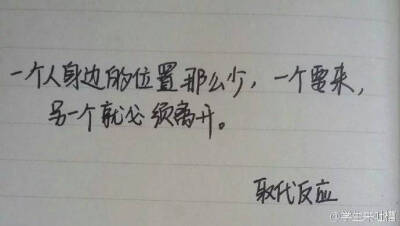 一个人身边的位置那么少，一个要来，
另一个就必须离开。
取代反应
@学生来吐槽